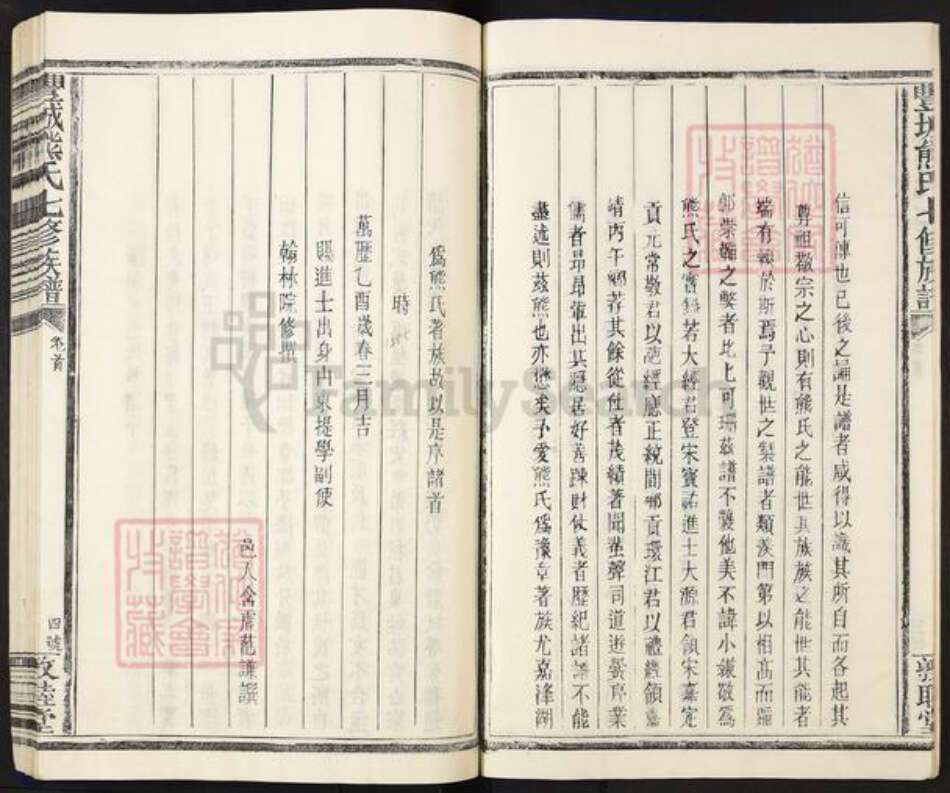 信可傳也已後之論是譜者咸得以識其所自而各起其
尊祖敬宗之心則有熊氏之能世其族族之能世其能者
端有於斯焉予觀世之製譜者類羨門第以相高而蹈
郭崇韜之弊者比比可珊茲譜不襲他美不諱小
熊氏之實若大經君登宋寶祐進士大源君領宋嘉定
貢元常敬君以葩經應正統間鄉貢環江君以禮經領嘉
靖丙午鄉荐其餘從仕者茂績著聞蜚聲司道遊黌序業
儒者昂昂輩出其隱居好善踈財仗義者歷紀諸譜不能
盡述則茲熊也亦懋矣予愛熊氏為豫章著族尤嘉澤湖
為熊氏著族故以是序諸首
時
萬歷乙酉歲春三月吉
賜進士出身山東提學副使
翰林院修撰
邑人含虛范謙譔
豐城熊氏七修族譜
卷首
四號
敦睦堂
豐城熊氏七修族譜
FamilySearch